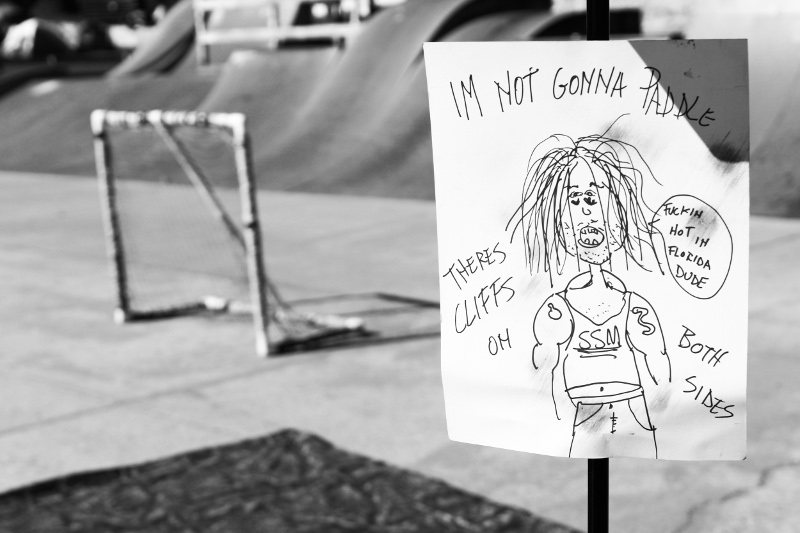 IM NOT GONNA PADDLE
FUCKIN
HOT IN
FLORIDA
DUDE
THERES
CLIFFS
ON
BOTH
SIDES
SSM